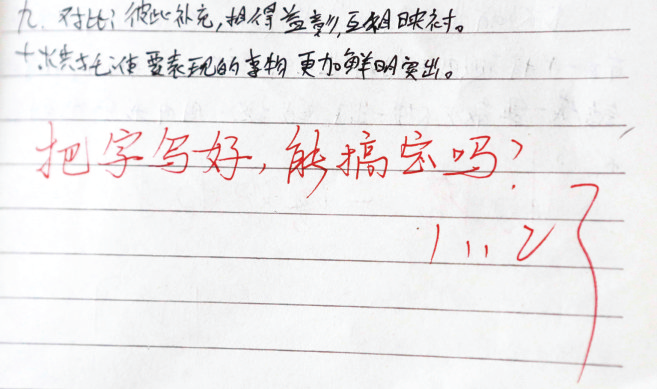 九. 对比：彼此补充，相得益彰，互相映衬。
十.烘托：使要表现的事物更加鲜明突出。
把字写好，能搞定吗？